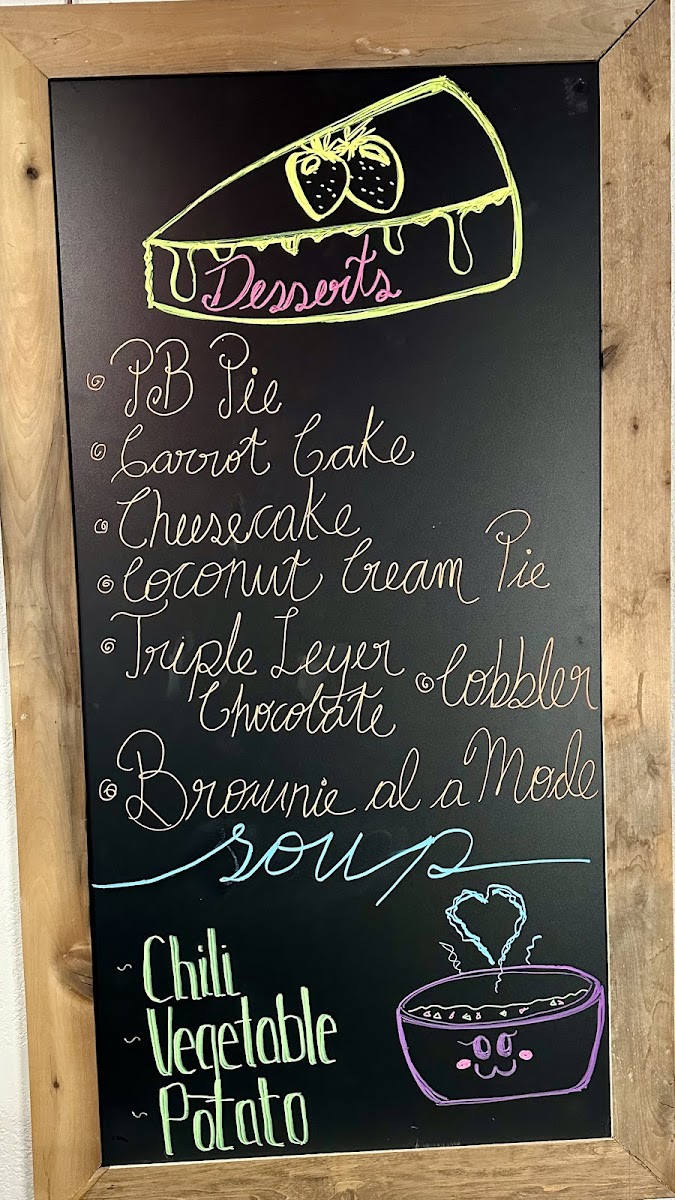 Desserts
PB Pie
Carrot Cake
Cheesecake
Coconut Cream Pie
Triple Leyer
Chocolate
Cobbler
Brownie al a Mode
soup
~ Chili
~ Vegetable
~ Potato